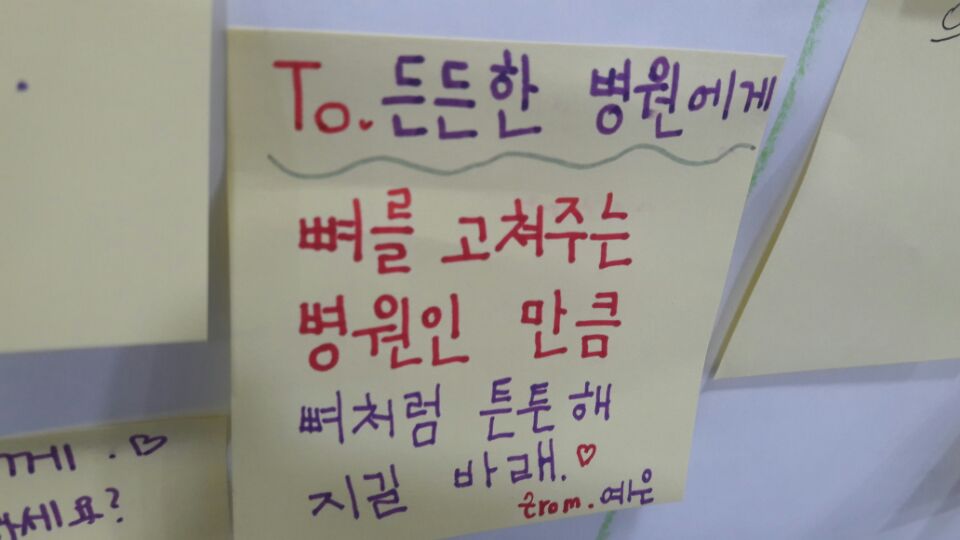 To. 든든한 병원에게
뼈를 고쳐주는
병원인 만큼
뼈처럼 튼튼해
지길 바래.♡
from. 예은
께.♡
세요?